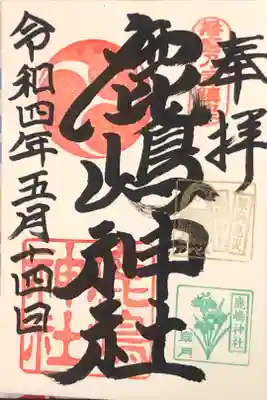 奉拝
鹿嶋神社
令和四年五月十四日
神社
鹿嶋神社
皐月